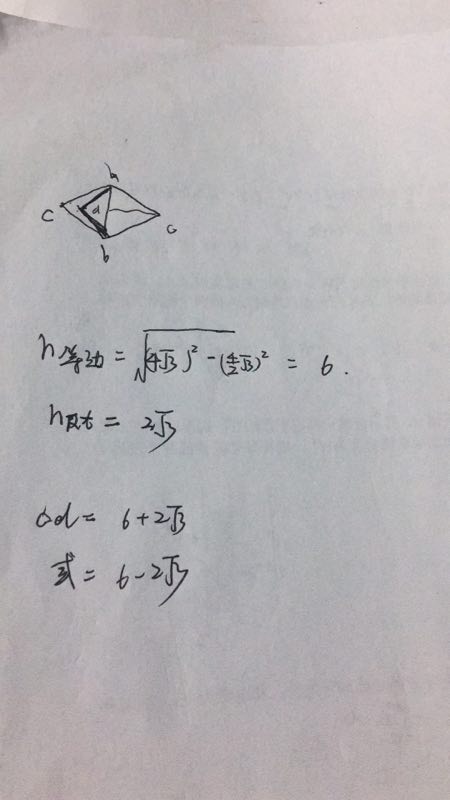 a
c d
c
b
h等边 = √(4√3)² - (4/2√3)² = 6.
h = 2√3
cd = 6 + 2√3
或 = 6 - 2√3